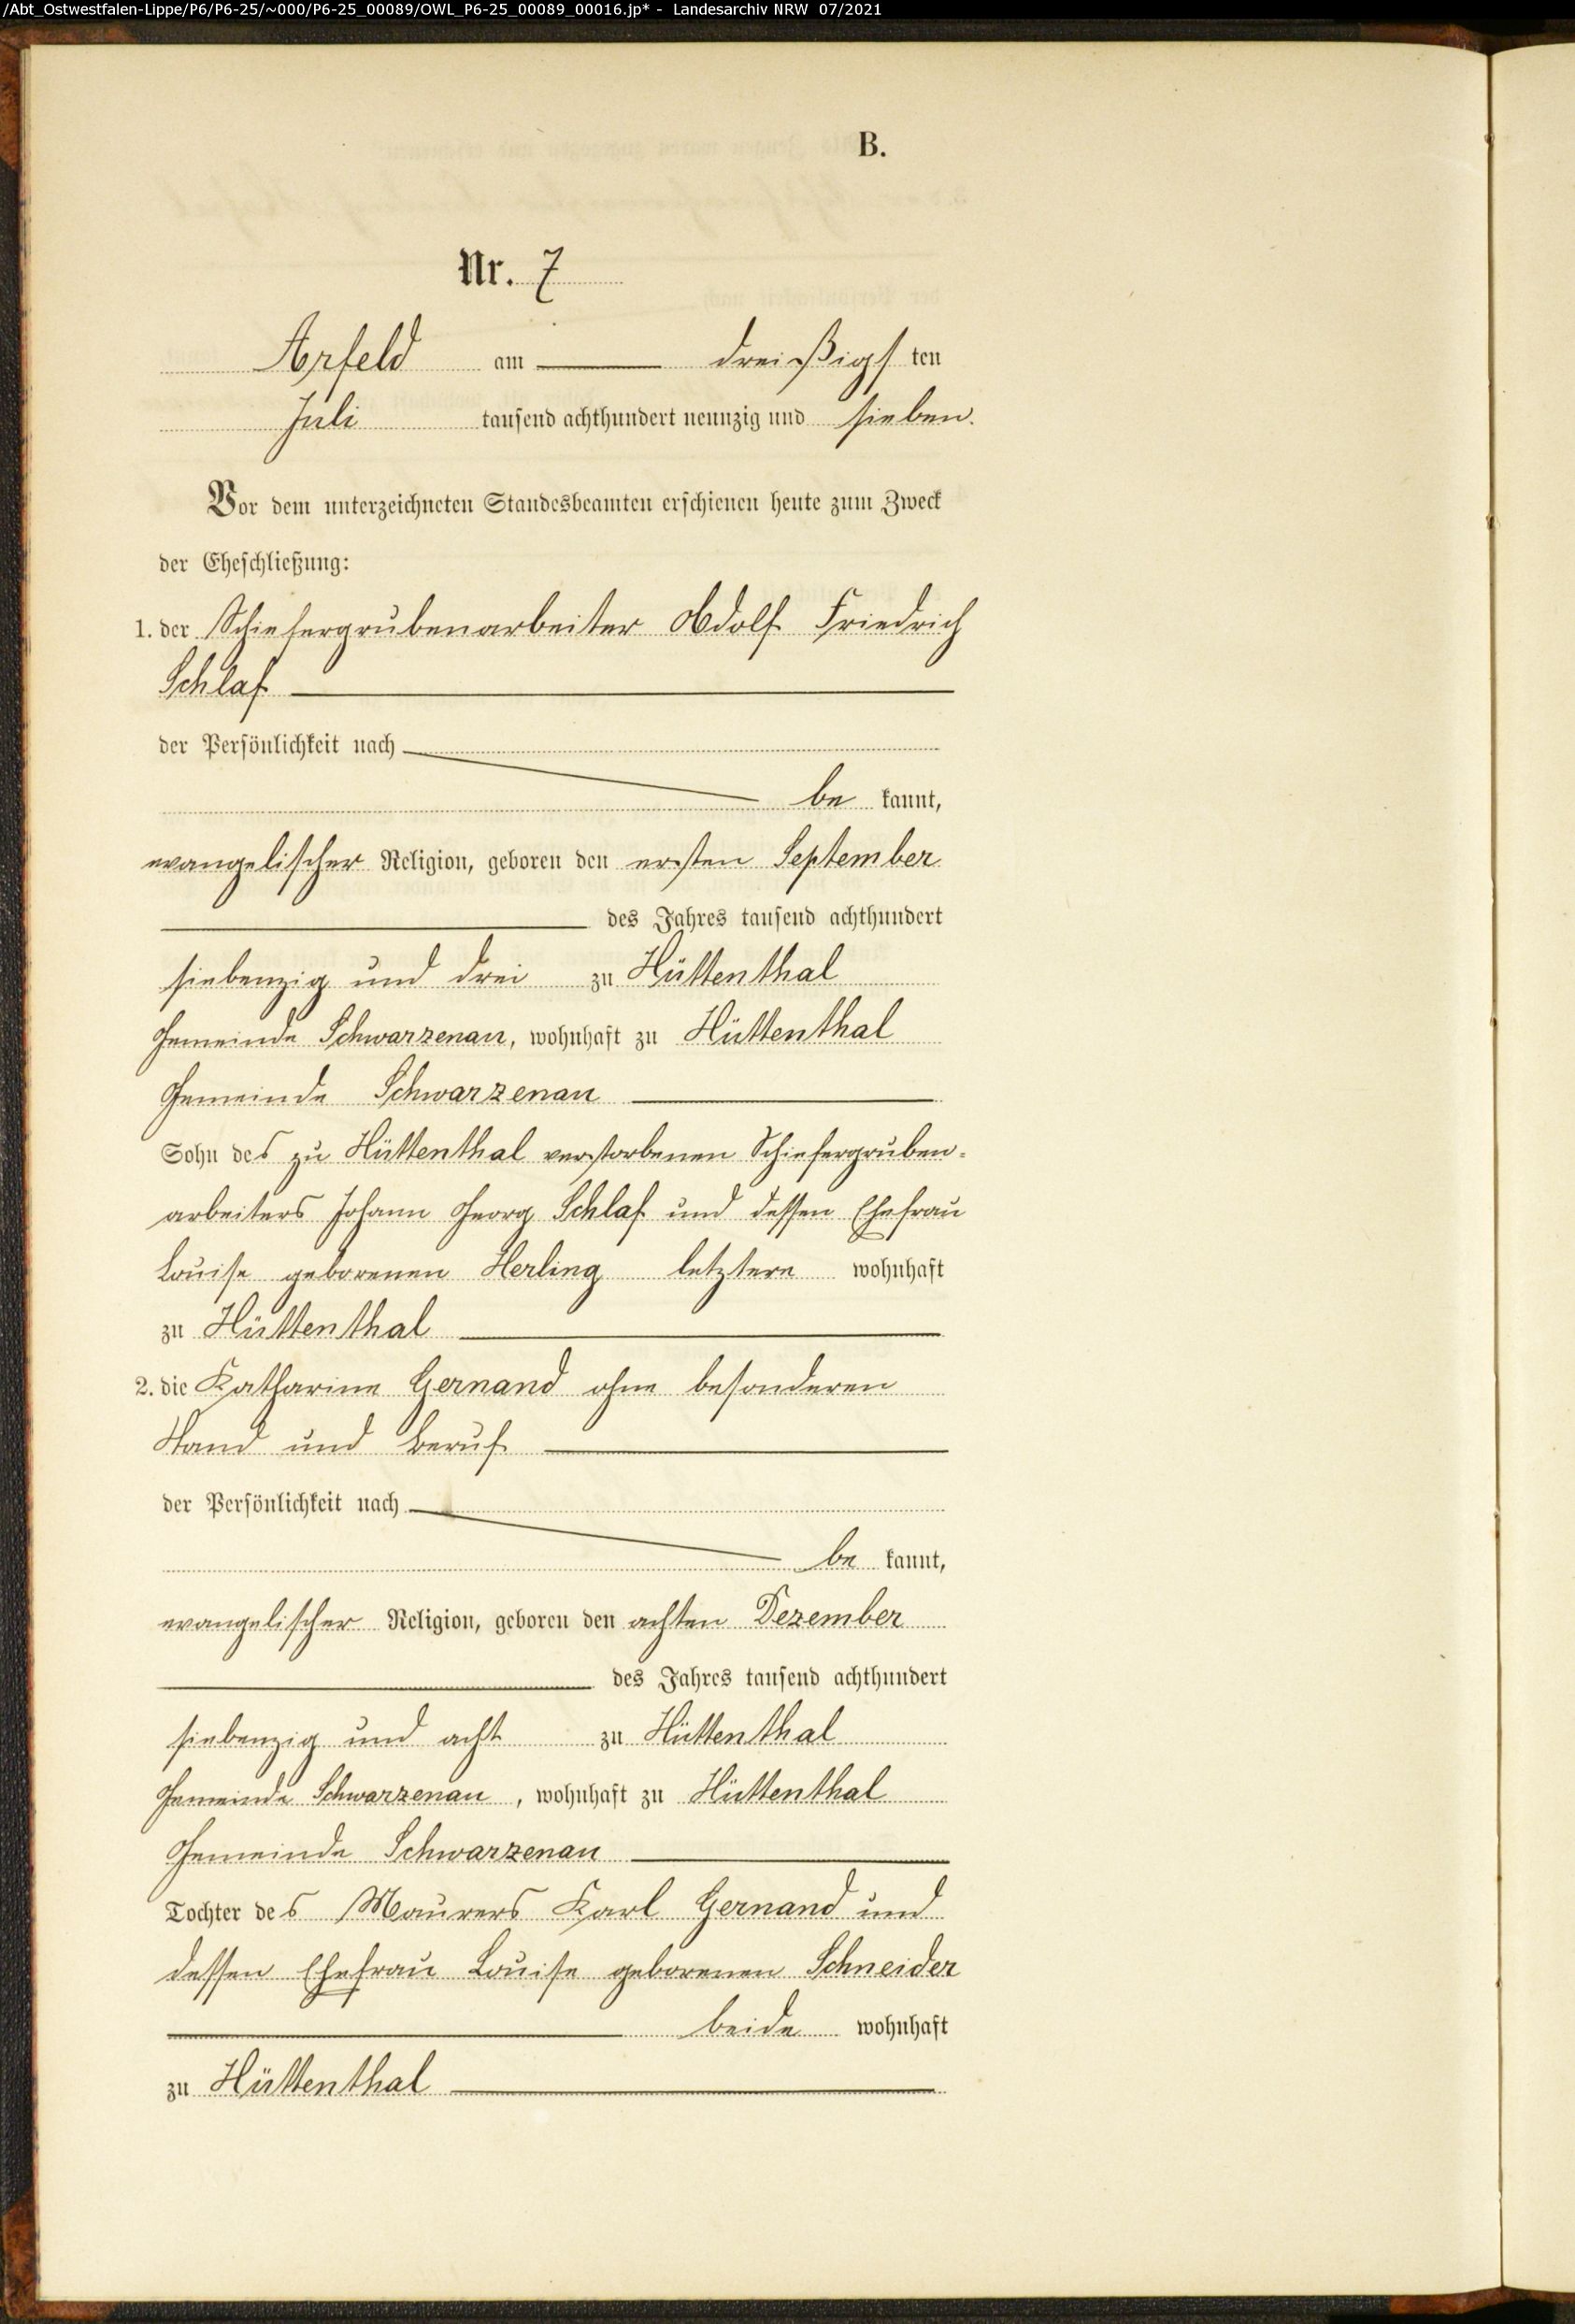 /Abt_Ostwestfalen-Lippe/P6/P6-25/~000/P6-25_00089/OWL_P6-25_00089_00016.jp* - Landesarchiv NRW 07/2021
B.
Nr. 7
Arfeld am dreißigsten
Juli tausend achthundert neunzig und sieben.
Vor dem unterzeichneten Standesbeamten erschienen heute zum Zweck
der Eheschließung:
1. der Schiefergrubenarbeiter Adolf Friedrich
Schlaf
der Persönlichkeit nach
be kannt,
evangelischer Religion, geboren den ersten September
des Jahres tausend achthundert
siebenzig und drei zu Hüttenthal
Gemeinde Schwarzenau, wohnhaft zu Hüttenthal
Gemeinde Schwarzenau
Sohn des zu Hüttenthal verstorbenen Schiefergruben-
arbeiters Johann Georg Schlaf und dessen Ehefrau
Louise geborenen Herling letztere wohnhaft
zu Hüttenthal
2. die Katharine Gernand ohne besonderen
Stand und Beruf
der Persönlichkeit nach
be kannt,
evangelischer Religion, geboren den achten Dezember
des Jahres tausend achthundert
siebenzig und acht zu Hüttenthal
Gemeinde Schwarzenau, wohnhaft zu Hüttenthal
Gemeinde Schwarzenau
Tochter des Maurers Karl Gernand und
dessen Ehefrau Louise geborenen Schneider
beide wohnhaft
zu Hüttenthal